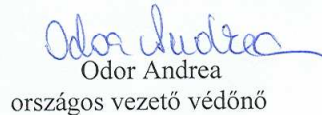 Odor Andrea
Odor Andrea
országos vezető védőnő